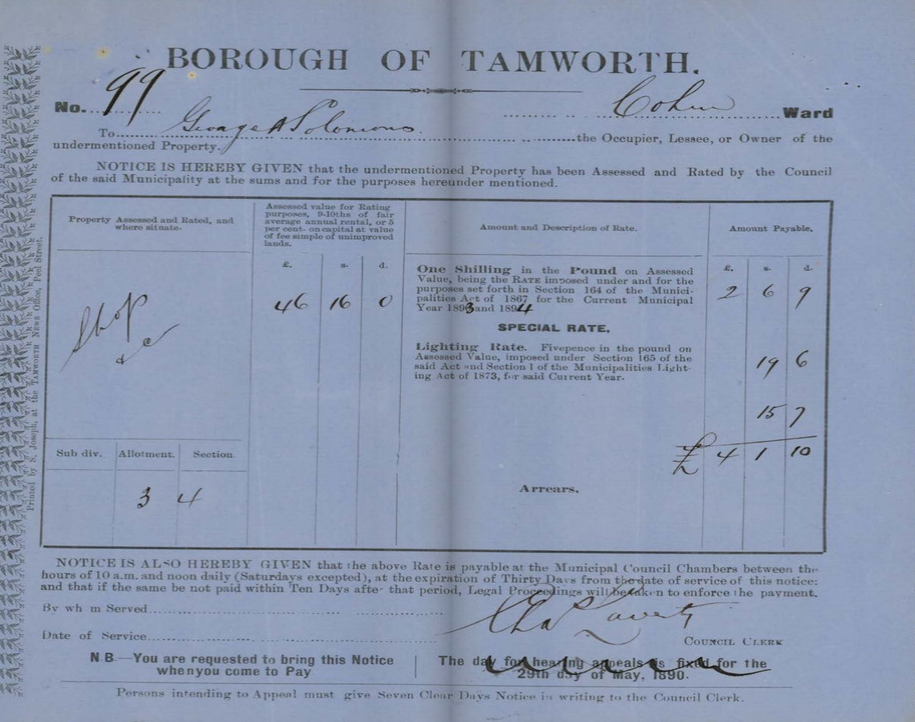 BOROUGH OF TAMWORTH.
No. 99 Cohen Ward
To George A Solomons the Occupier, Lessee, or Owner of the
undermentioned Property.
NOTICE IS HEREBY GIVEN that the undermentioned Property has been Assessed and Rated by the Council
of the said Municipality at the sums and for the purposes hereunder mentioned.
Property Assessed and Rated, and
where situate.
Assessed value for Rating
purposes, 9-10ths of fair
average annual rental, or 5
per cent- on capital at value
of fee simple of unimproved
lands.
Amount and Description of Rate.
Amount Payable.
£. s. d.
46 16 0
Shop
&c
One Shilling in the Pound on Assessed
Value, being the RATE imposed under and for the
purposes set forth in Section 164 of the Munici-
palities Act of 1867 for the Current Municipal
Year 1893 and 1894
£. s. d.
2 6 9
SPECIAL RATE.
Lighting Rate. Fivepence in the pound on
Assessed Value, imposed under Section 165 of the
said Act and Section 1 of the Municipalities Light-
ing Act of 1873, for said Current Year.
19 6
15 7
£ 4 1 10
Sub div. Allotment. Section.
3 4
Arrears.
NOTICE IS ALSO HEREBY GIVEN that the above Rate is payable at the Municipal Council Chambers between the
hours of 10 a.m. and noon daily (Saturdays excepted), at the expiration of Thirty Days from the date of service of this notice;
and that if the same be not paid within Ten Days after that period, Legal Proceedings will be taken to enforce the payment.
By wh m Served
Date of Service
COUNCIL CLERK
N B.—You are requested to bring this Notice
when you come to Pay
The day for hearing appeals is fixed for the
29th day of May, 1890.
Persons intending to Appeal must give Seven Clear Days Notice in writing to the Council Clerk.
Printed by S. Joseph, at the TAMWORTH NEWS Office, Peel Street.